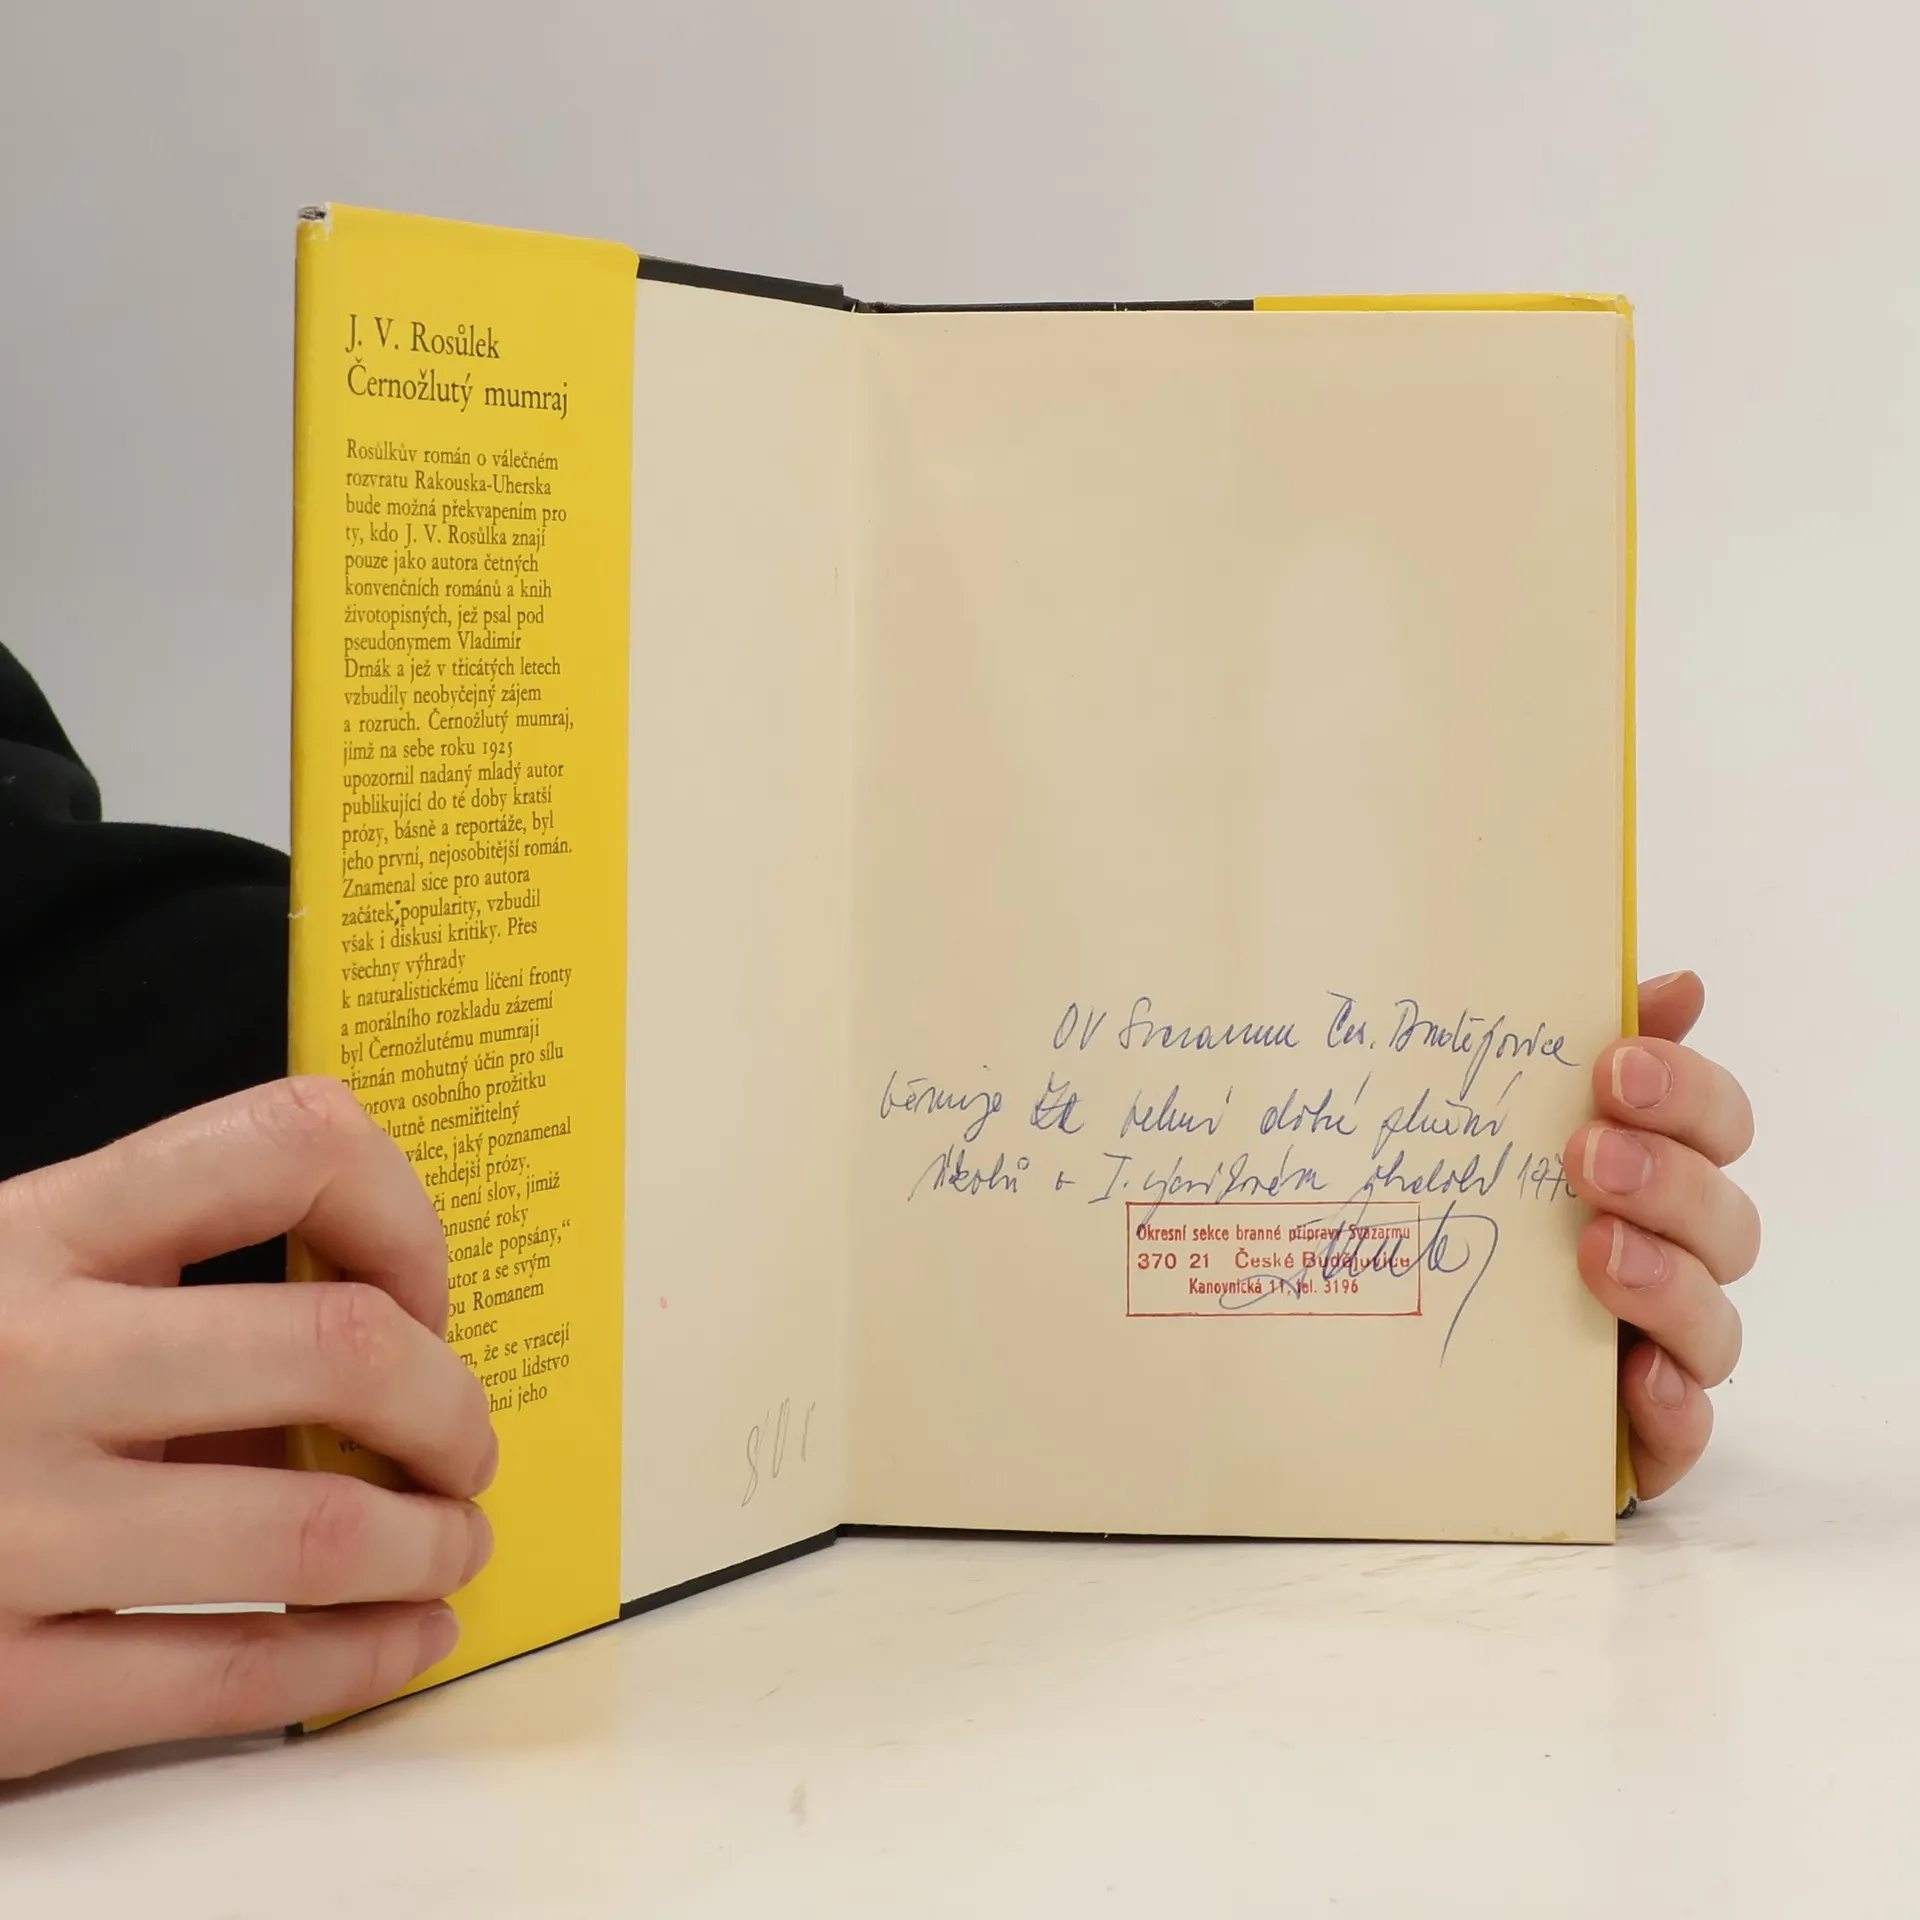 J. V. Rosůlek
Černožlutý mumraj
Rosůlkův román o válečném
rozvratu Rakouska-Uherska
bude možná překvapením pro
ty, kdo J. V. Rosůlka znají
pouze jako autora četných
konvenčních románů a knih
životopisných, jež psal pod
pseudonymem Vladimír
Drnák a jež v třicátých letech
vzbudily neobyčejný zájem
a rozruch. Černožlutý mumraj,
jímž na sebe roku 1925
upozornil nadaný mladý autor
publikující do té doby kratší
prózy, básně a reportáže, byl
jeho první, nejosobitější román.
Znamenal sice pro autora
začátek popularity, vzbudil
však i diskusi kritiky. Přes
všechny výhrady
k naturalistickému líčení fronty
a morálního rozkladu zázemí
byl Černožlutému mumraji
přiznán mohutný účin pro sílu
orova osobního prožitku
lutně nesmiřitelný
válce, jaký poznamenal
tehdejší prózy.
či není slov, jimiž
hnusné roky
konale popsány,“
utor a se svým
ou Romanem
akonec
m, že se vracejí
terou lidstvo
hni jeho
OV Svazarmu Čes. Budějovice
věnuje za velmi dobré plnění
úkolů v I. výcvikovém období 197
Okresní sekce branné přípravy Svazarmu
370 21 České Budějovice
Kanovnická 11, tel. 3196